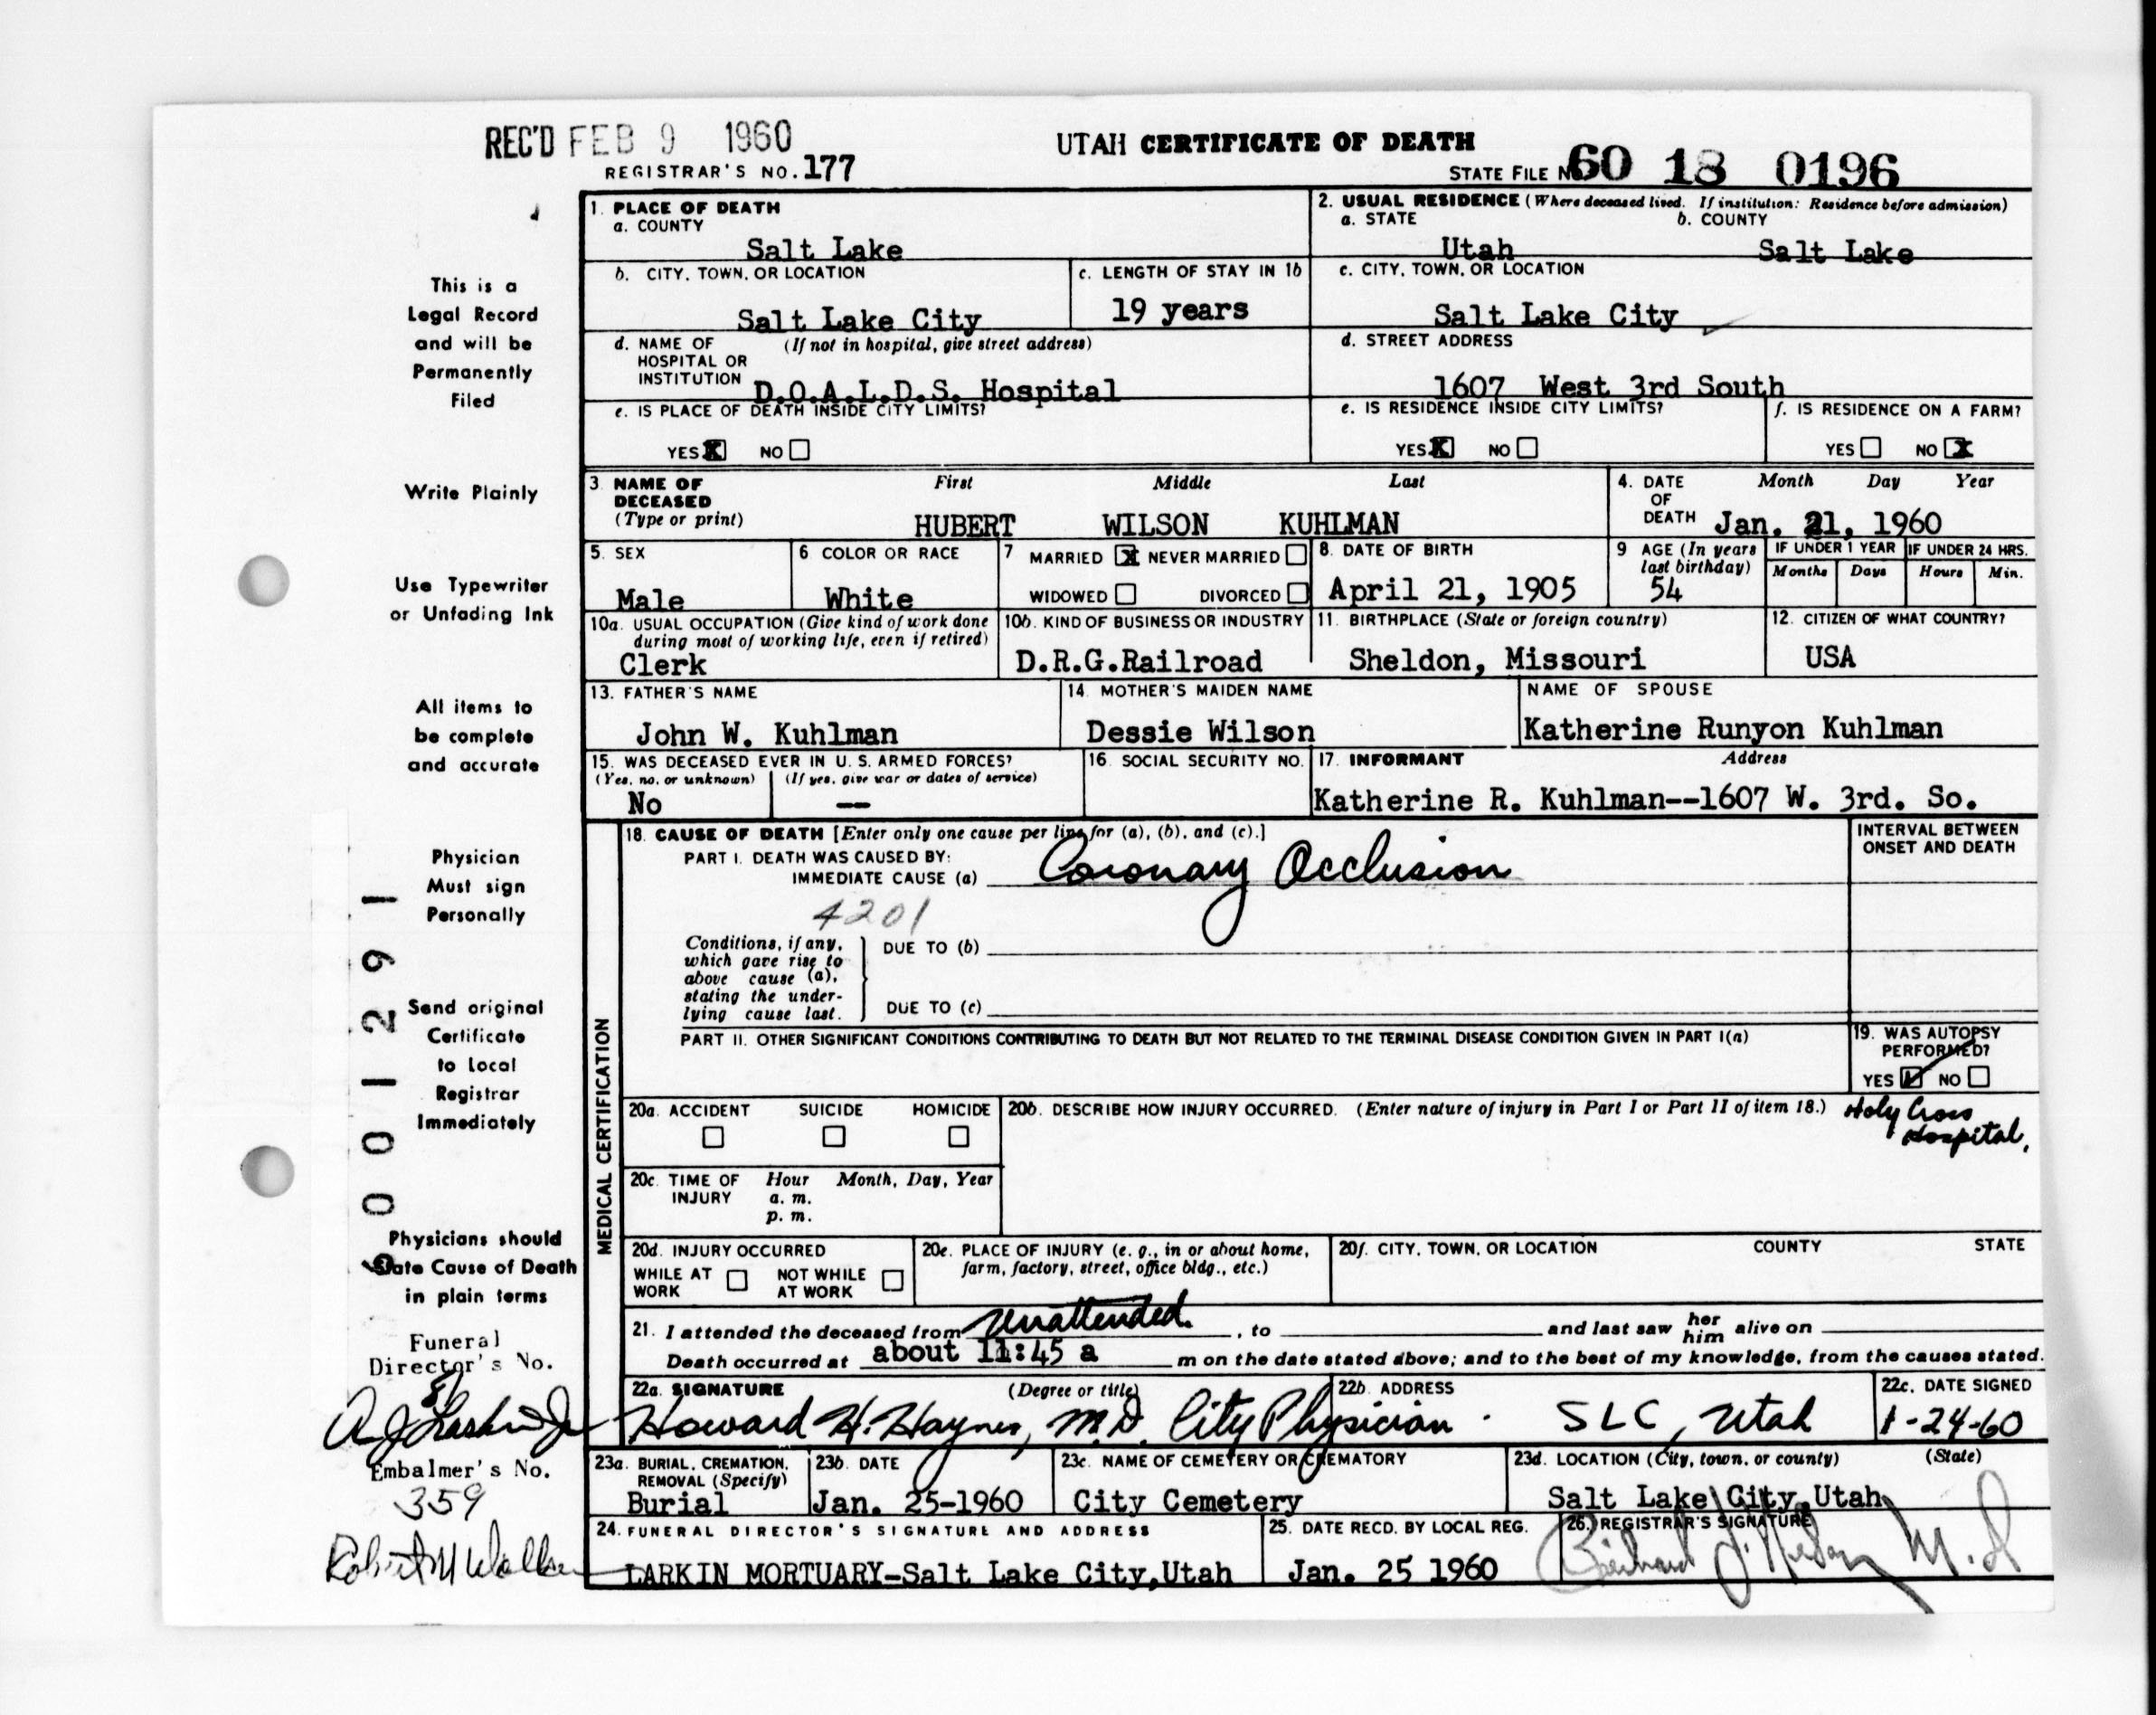 REC'D FEB 9 1960
UTAH CERTIFICATE OF DEATH
REGISTRAR'S NO. 177
STATE FILE NO. 60 18 0196
This is a
Legal Record
and will be
Permanently
Filed
Write Plainly
Use Typewriter
or Unfading Ink
All items to
be complete
and accurate
Physician
Must sign
Personally
Send original
Certificate
to Local
Registrar
Immediately
Physicians should
State Cause of Death
in plain terms
Funeral
Director's No.
Embalmer's No.
359
1. PLACE OF DEATH
a. COUNTY
Salt Lake
2. USUAL RESIDENCE (Where deceased lived. If institution: Residence before admission)
a. STATE b. COUNTY
Utah Salt Lake
b. CITY, TOWN, OR LOCATION
Salt Lake City
c. LENGTH OF STAY IN 1b
19 years
c. CITY, TOWN, OR LOCATION
Salt Lake City
d. NAME OF (If not in hospital, give street address)
HOSPITAL OR
INSTITUTION D.O.A.L.D.S. Hospital
d. STREET ADDRESS
1607 West 3rd South
e. IS PLACE OF DEATH INSIDE CITY LIMITS?
YES X NO
e. IS RESIDENCE INSIDE CITY LIMITS?
YES X NO
f. IS RESIDENCE ON A FARM?
YES NO X
3 NAME OF First Middle Last
DECEASED
(Type or print) HUBERT WILSON KUHLMAN
4. DATE Month Day Year
OF
DEATH Jan. 21, 1960
5. SEX
Male
6 COLOR OR RACE
White
7 MARRIED X NEVER MARRIED
WIDOWED DIVORCED
8. DATE OF BIRTH
April 21, 1905
9 AGE (In years
last birthday)
54
IF UNDER 1 YEAR
Months Days
IF UNDER 24 HRS.
Hours Min.
10a. USUAL OCCUPATION (Give kind of work done
during most of working life, even if retired)
Clerk
10b. KIND OF BUSINESS OR INDUSTRY
D.R.G.Railroad
11. BIRTHPLACE (State or foreign country)
Sheldon, Missouri
12. CITIZEN OF WHAT COUNTRY?
USA
13. FATHER'S NAME
John W. Kuhlman
14. MOTHER'S MAIDEN NAME
Dessie Wilson
NAME OF SPOUSE
Katherine Runyon Kuhlman
15. WAS DECEASED EVER IN U. S. ARMED FORCES?
(Yes, no, or unknown) (If yes, give war or dates of service)
No --
16. SOCIAL SECURITY NO.
17. INFORMANT Address
Katherine R. Kuhlman--1607 W. 3rd. So.
MEDICAL CERTIFICATION
18. CAUSE OF DEATH [Enter only one cause per line for (a), (b), and (c).]
PART I. DEATH WAS CAUSED BY:
IMMEDIATE CAUSE (a) Coronary Occlusion
4201
Conditions, if any,
which gave rise to
above cause (a),
stating the under-
lying cause last.
DUE TO (b)
DUE TO (c)
INTERVAL BETWEEN
ONSET AND DEATH
PART II. OTHER SIGNIFICANT CONDITIONS CONTRIBUTING TO DEATH BUT NOT RELATED TO THE TERMINAL DISEASE CONDITION GIVEN IN PART I(a)
19. WAS AUTOPSY
PERFORMED?
YES NO
Holy Cross
Hospital,
20a. ACCIDENT SUICIDE HOMICIDE
20b. DESCRIBE HOW INJURY OCCURRED. (Enter nature of injury in Part I or Part II of item 18.)
20c. TIME OF Hour Month, Day, Year
INJURY a. m.
p. m.
20d. INJURY OCCURRED
WHILE AT NOT WHILE
WORK AT WORK
20e. PLACE OF INJURY (e. g., in or about home,
farm, factory, street, office bldg., etc.)
20f. CITY, TOWN, OR LOCATION COUNTY STATE
21. I attended the deceased from Unattended. , to and last saw her him alive on
Death occurred at about 11:45 a m on the date stated above; and to the best of my knowledge, from the causes stated.
22a. SIGNATURE (Degree or title)
Howard H. Haynes, M.D. City Physician
22b. ADDRESS
SLC, Utah
22c. DATE SIGNED
1-24-60
23a. BURIAL, CREMATION,
REMOVAL (Specify)
Burial
23b. DATE
Jan. 25-1960
23c. NAME OF CEMETERY OR CREMATORY
City Cemetery
23d. LOCATION (City, town, or county) (State)
Salt Lake City,Utah
24. FUNERAL DIRECTOR'S SIGNATURE AND ADDRESS
LARKIN MORTUARY-Salt Lake City,Utah
25. DATE RECD. BY LOCAL REG.
Jan. 25 1960
26. REGISTRAR'S SIGNATURE